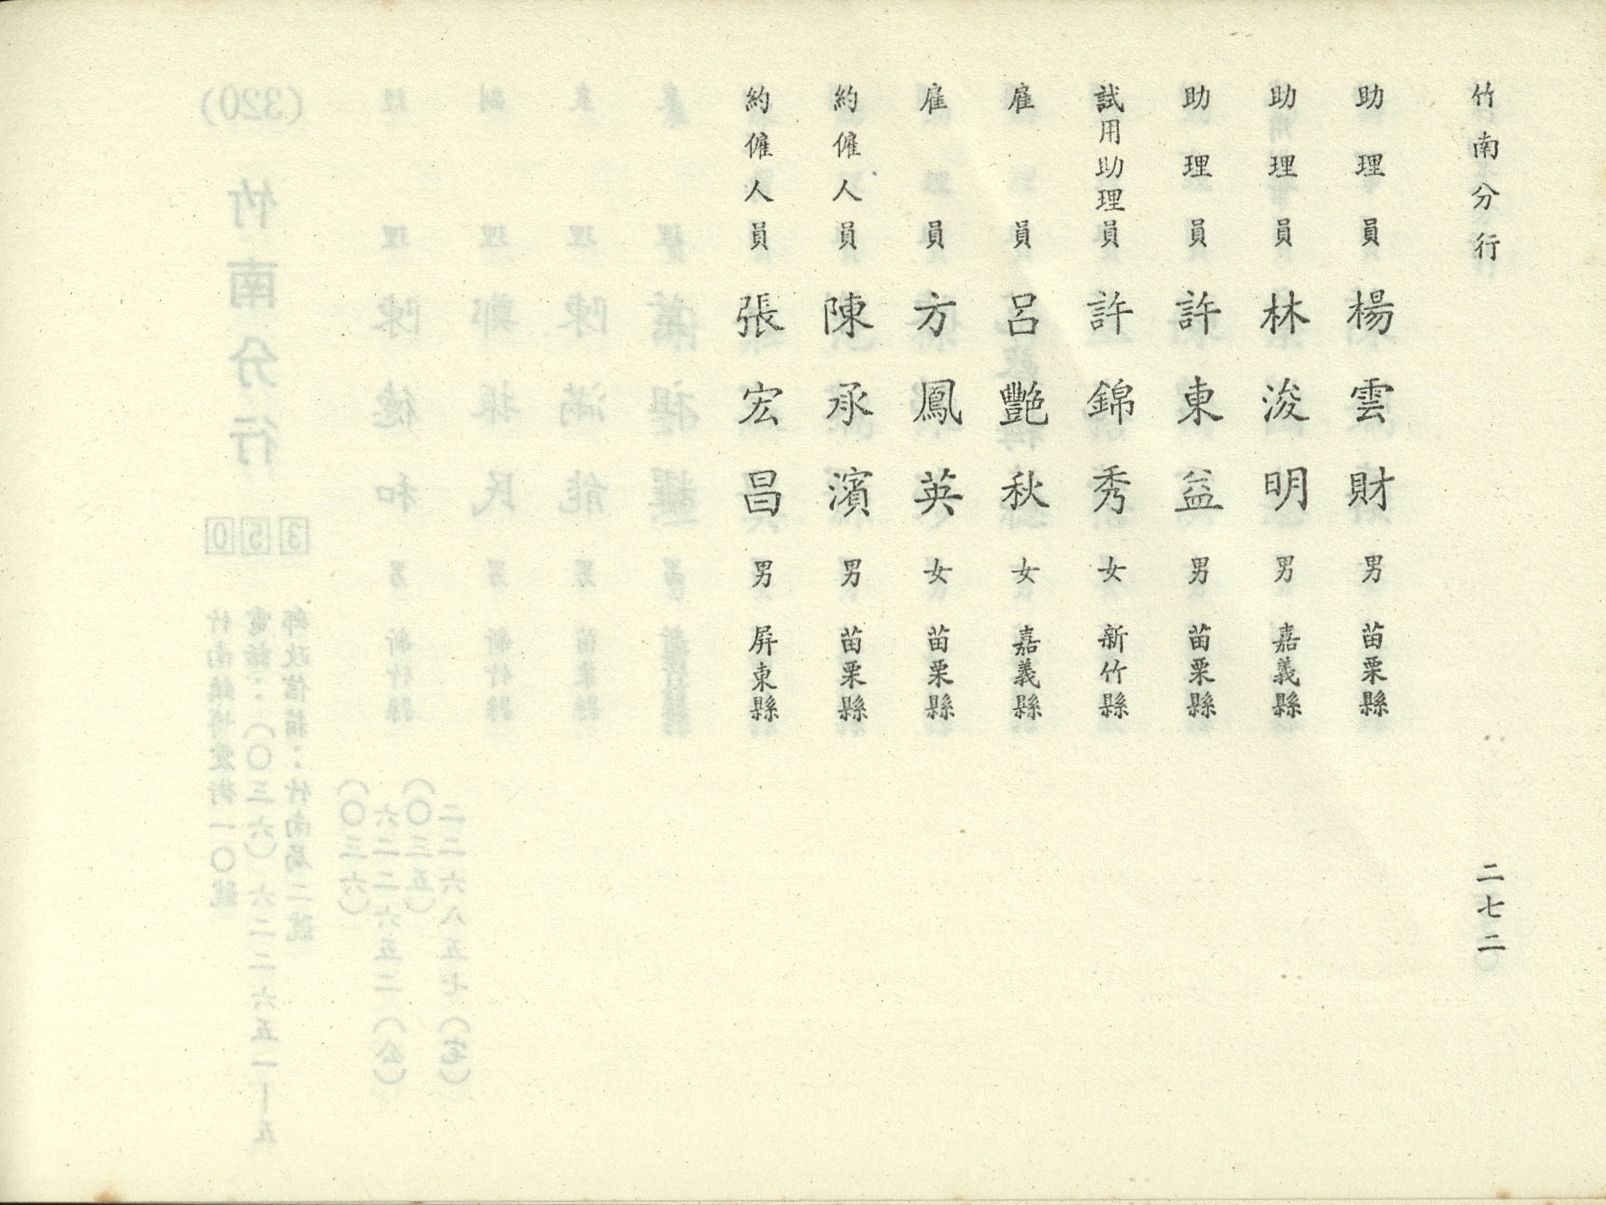 竹南分行
二七二
助理員 楊雲財 男 苗栗縣
助理員 林浚明 男 嘉義縣
助理員 許東益 男 苗栗縣
試用助理員 許錦秀 女 新竹縣
雇員 呂艷秋 女 嘉義縣
雇員 方鳳英 女 苗栗縣
約僱人員 陳承濱 男 苗栗縣
約僱人員 張宏昌 男 屏東縣